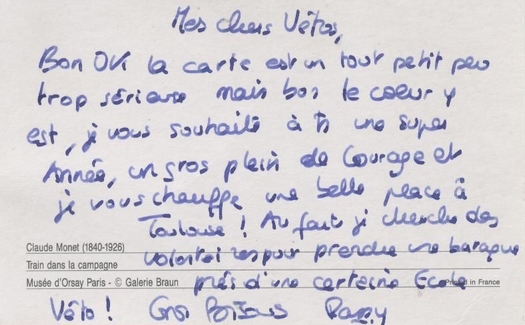 Mes chers Vétos,
Bon OK la carte est un tout petit peu
trop sérieuse mais bon le coeur y
est, je vous souhaite à ts une super
Année, un gros plein de Courage et
je vous chauffe une belle place à
Toulouse ! Au fait je cherche des
volontaires pour prendre une baraque
près d'une certaine Ecole
Véto ! Gros Bisous
Claude Monet (1840-1926)
Train dans la campagne
Musée d'Orsay Paris - © Galerie Braun
Printed in France